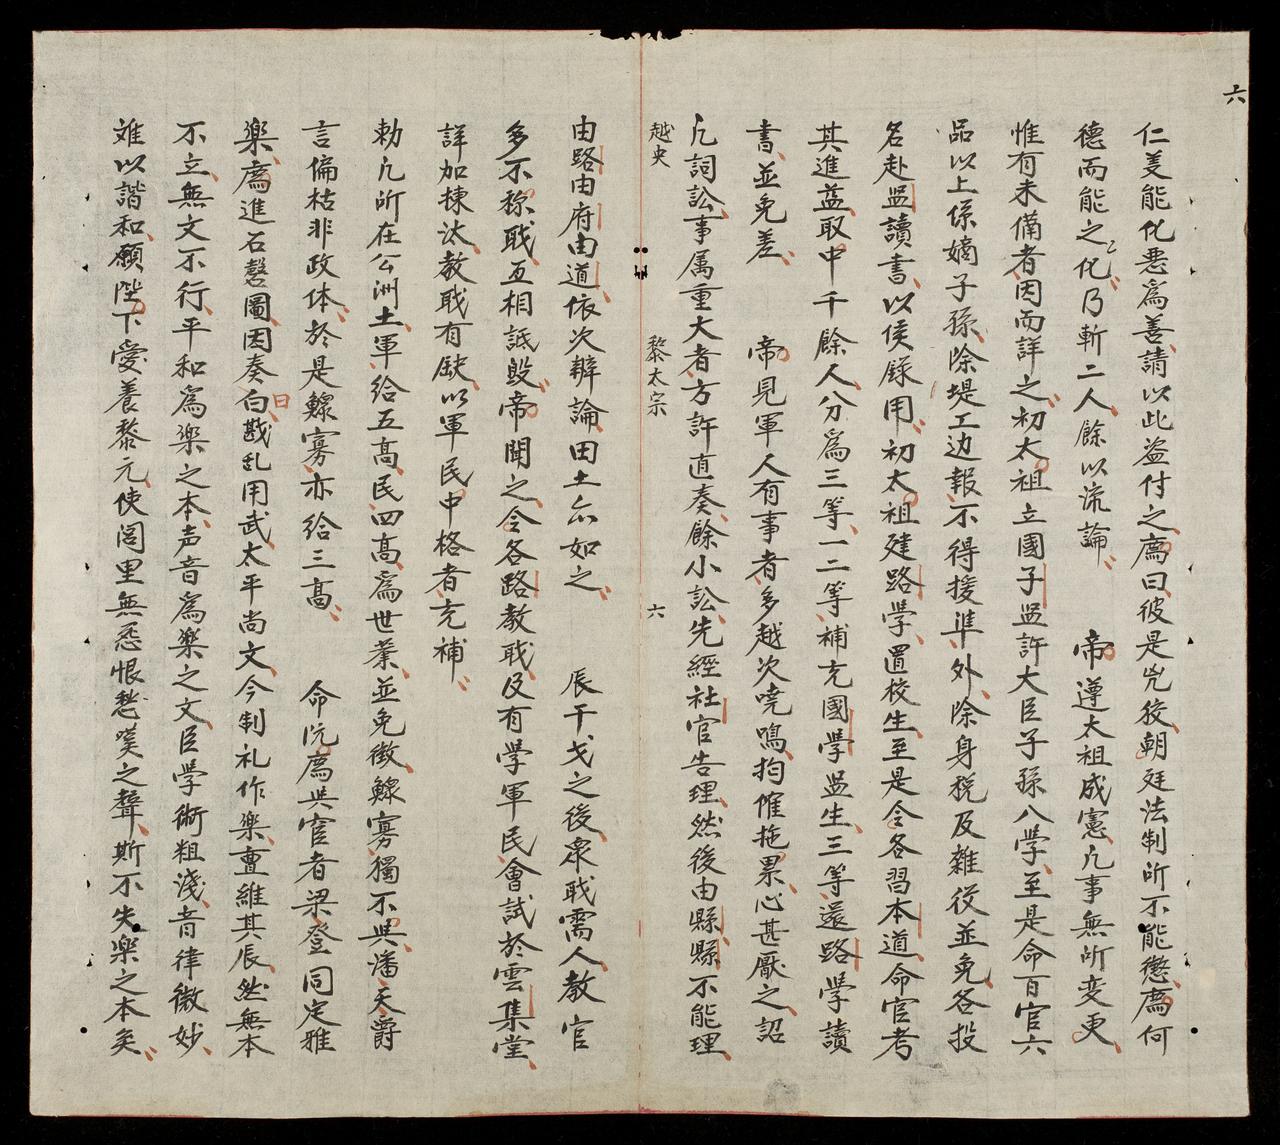 六
仁美能化惡為善請以此盗付之廌曰彼是兇狡朝廷法制所不能懲廌何
德而能之化乃斬二人餘以流論　帝遵太祖成憲凡事無所变更
惟有未備者因而詳之初太祖立國子监許大臣子孫入学至是命百官六
品以上係嫡子孫除堤工边報不得援準外除身税及雜役並免各投
名赴监讀書以俟錄用初太祖建路学置校生至是令各習本道命官考
其進益取中千餘人分為三等一二等補充國学监生三等還路学讀
書並免差　帝見軍人有事者多越次嘵鳴拘催拖累心甚厭之詔
凡詞訟事属重大者方許直奏餘小訟先經社官告理然後由縣縣不能理
越史　黎太宗　六
由路由府由道依次辨論田土亦如之　辰干戈之後衆戢需人教官
多不称戢互相詆毀帝聞之令各路教戢及有学軍民會試於雲集堂
詳加揀汰教戢有缺以軍民中格者充補
勅凡所在公洲土軍給五高民四高為世業並免徵鰥寡獨不與潘天爵
言偏枯非政体於是鰥寡亦给三高　命阮廌與宦者梁登同定雅
楽廌進石磬圖因奏曰戡乱用武太平尚文今制礼作楽亶維其辰然無本
不立無文不行平和為楽之本声音為楽之文臣学術粗淺音律微妙
难以諧和願陛下愛养黎元使闾里無恶恨愁嘆之聲斯不失楽之本矣